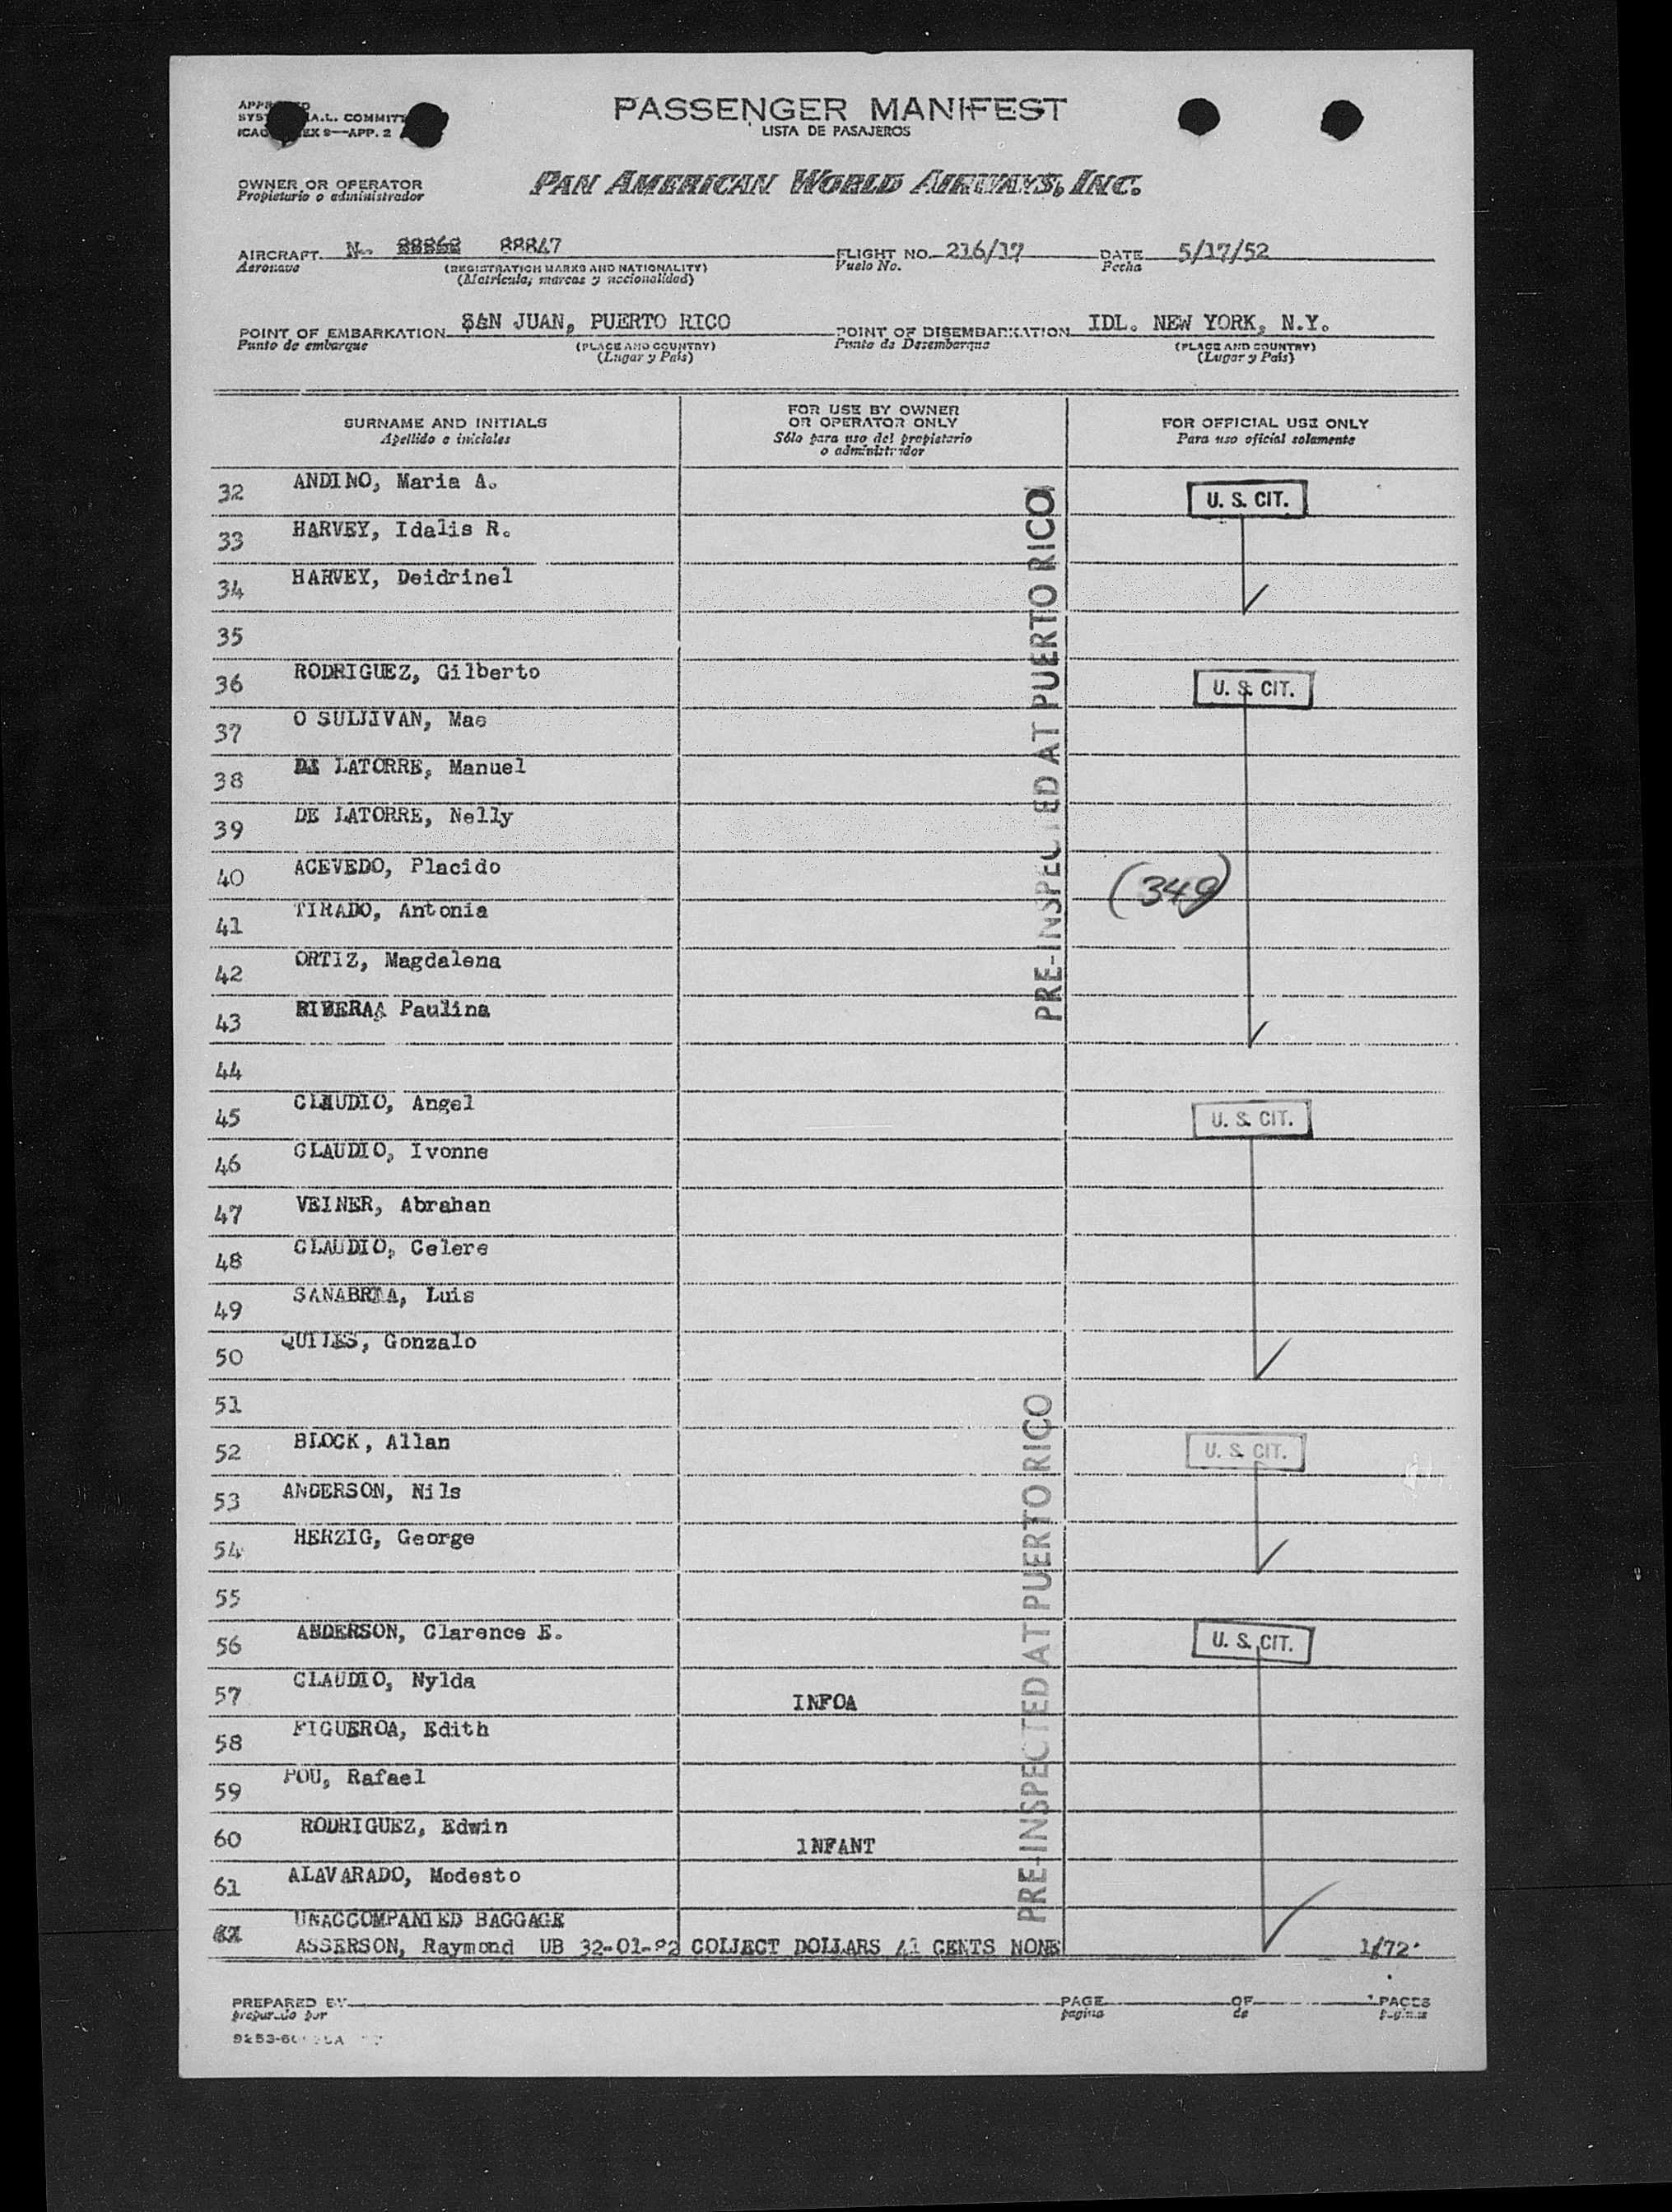 PASSENGER MANIFEST
LISTA DE PASAJEROS
A.L. COMMITT
EX 9—APP. 2
OWNER OR OPERATOR
Propietario o administrador
PAN AMERICAN WORLD AIRWAYS, INC.
AIRCRAFT N. 88868 88847 FLIGHT NO. 216/17 DATE 5/17/52
Aeronave (REGISTRATION MARKS AND NATIONALITY) Vuelo No. Fecha
(Matricula, marcas y nacionalidad)
POINT OF EMBARKATION SAN JUAN, PUERTO RICO POINT OF DISEMBARKATION IDL. NEW YORK, N.Y.
Punto de embarque (PLACE AND COUNTRY) Punto de Desembarque (PLACE AND COUNTRY)
(Lugar y País) (Lugar y País)
SURNAME AND INITIALS
Apellido e iniciales
FOR USE BY OWNER
OR OPERATOR ONLY
Sólo para uso del propietario
o administrador
FOR OFFICIAL USE ONLY
Para uso oficial solamente
32 ANDINO, Maria A. U. S. CIT.
33 HARVEY, Idalis R.
34 HARVEY, Deidrinel
35
36 RODRIGUEZ, Gilberto U. S. CIT.
37 O SULLIVAN, Mae
38 DE LATORRE, Manuel
39 DE LATORRE, Nelly
40 ACEVEDO, Placido (349)
41 TIRADO, Antonia
42 ORTIZ, Magdalena
43 RIVERA, Paulina
PRE-INSPECTED AT PUERTO RICO
44
45 CLAUDIO, Angel U. S. CIT.
46 CLAUDIO, Ivonne
47 VEINER, Abrahan
48 CLAUDIO, Celere
49 SANABRIA, Luis
50 QUILES, Gonzalo
51
52 BLOCK, Allan U. S. CIT.
53 ANDERSON, Nils
54 HERZIG, George
55
56 ANDERSON, Clarence E. U. S. CIT.
57 CLAUDIO, Nylda INFOA
58 FIGUEROA, Edith
59 POU, Rafael
60 RODRIGUEZ, Edwin INFANT
61 ALAVARADO, Modesto
PRE-INSPECTED AT PUERTO RICO
UNACCOMPANIED BAGGAGE
ASSERSON, Raymond UB 32-01-82 COLLECT DOLLARS 41 CENTS NONE 1/72
PREPARED BY PAGE OF PAGES
preparado por pagina de paginas